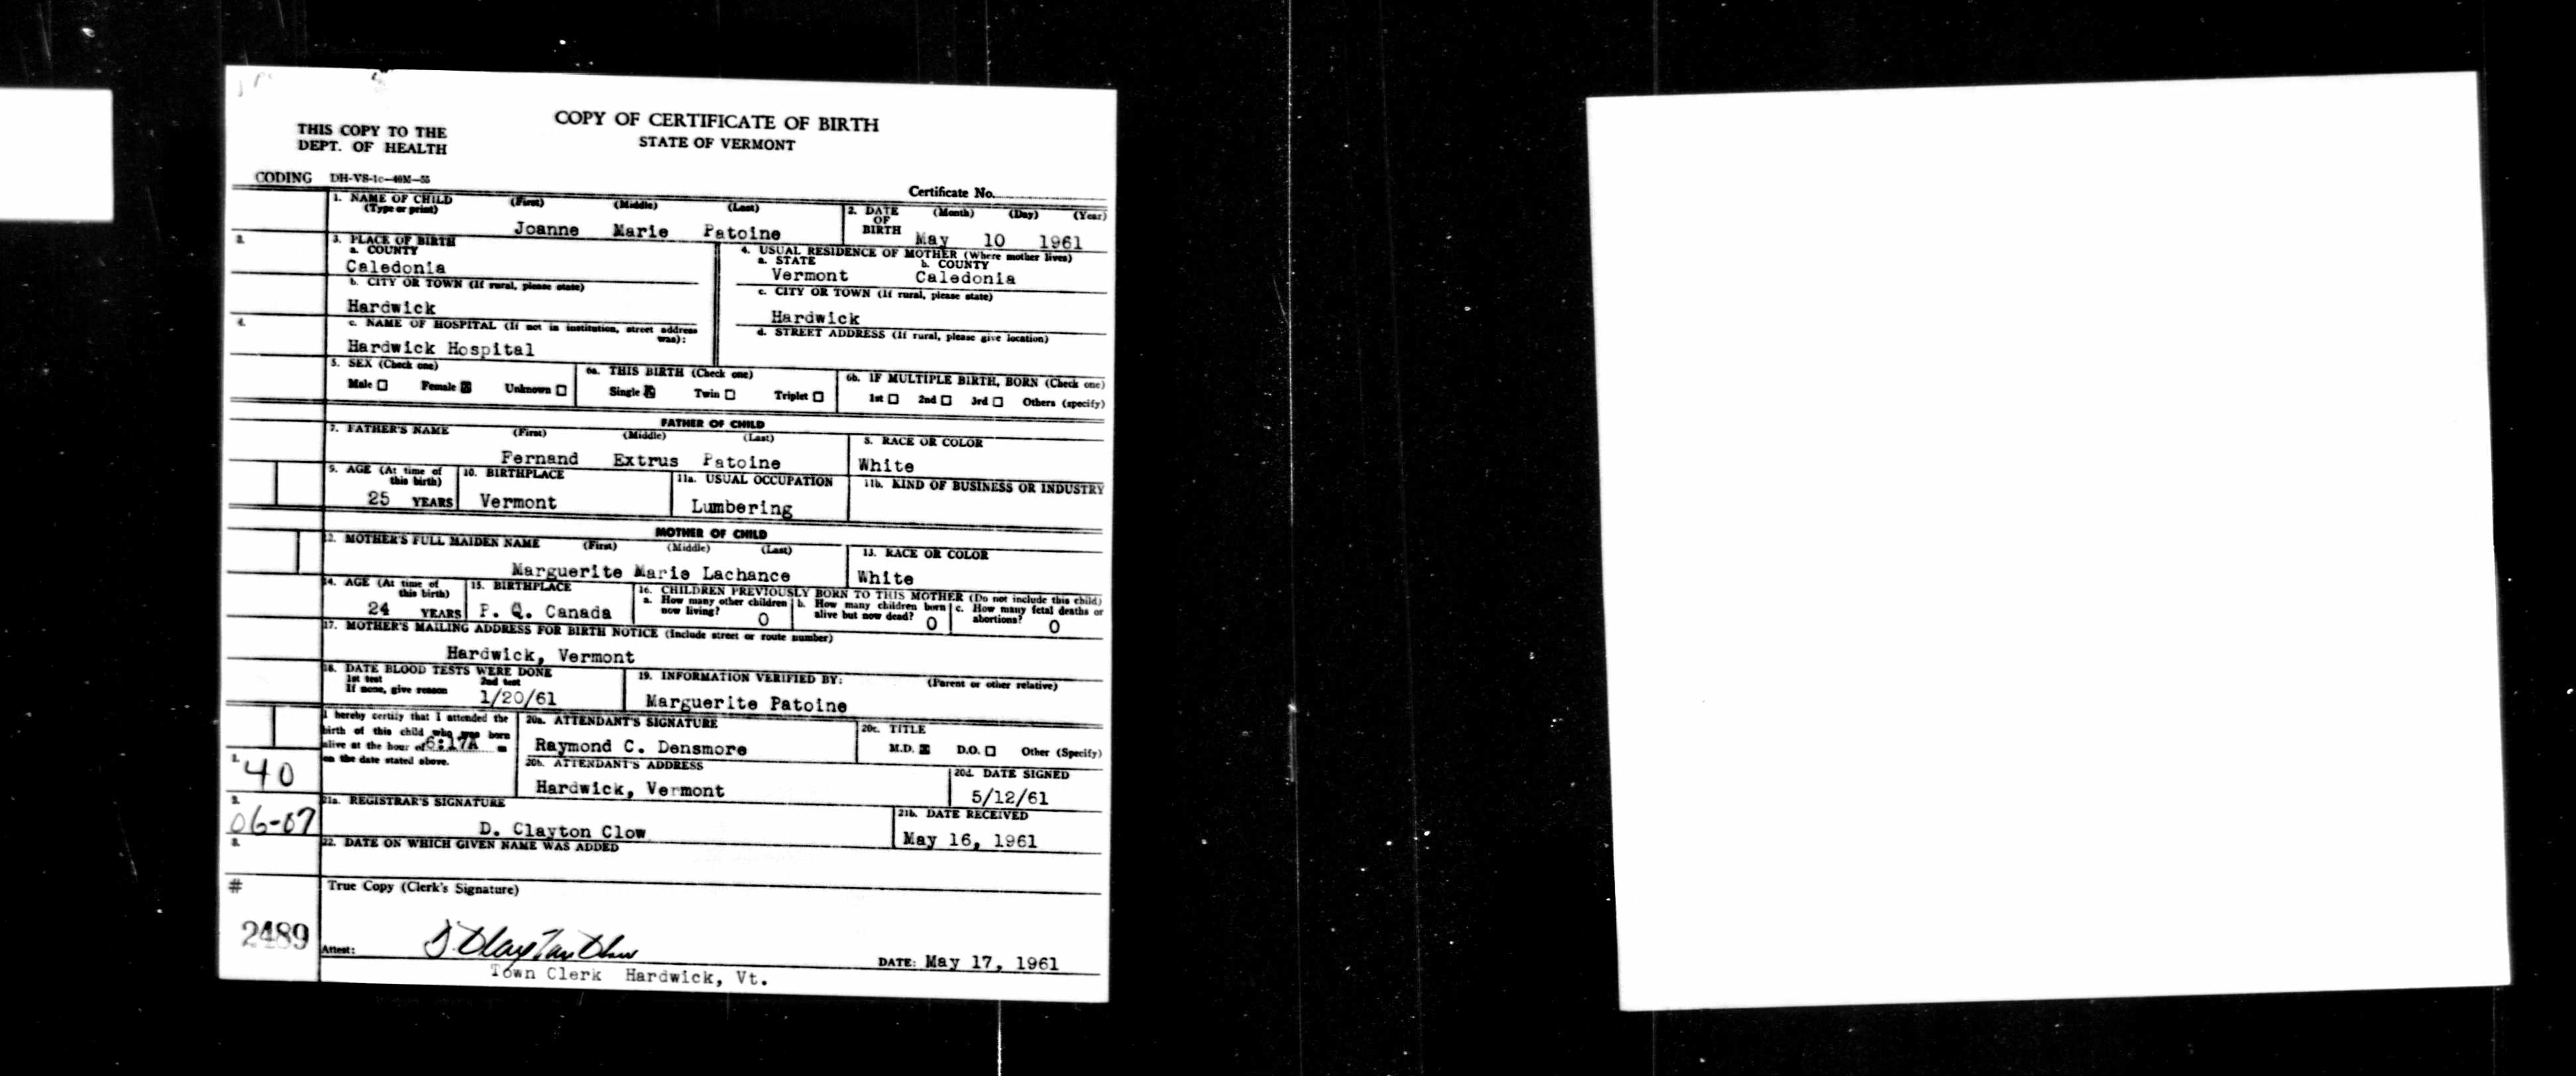 THIS COPY TO THE
DEPT. OF HEALTH
COPY OF CERTIFICATE OF BIRTH
STATE OF VERMONT
CODING DH-VS-1c-40M-55
Certificate No.
1. NAME OF CHILD (First) (Middle) (Last)
(Type or print)
Joanne Marie Patoine
2. DATE OF BIRTH (Month) (Day) (Year)
May 10 1961
3. 3. PLACE OF BIRTH
a. COUNTY
Caledonia
b. CITY OR TOWN (If rural, please state)
Hardwick
4. c. NAME OF HOSPITAL (If not in institution, street address was):
Hardwick Hospital
4. USUAL RESIDENCE OF MOTHER (Where mother lives)
a. STATE b. COUNTY
Vermont Caledonia
c. CITY OR TOWN (If rural, please state)
Hardwick
d. STREET ADDRESS (If rural, please give location)
5. SEX (Check one)
Male ☐ Female ☒ Unknown ☐
6a. THIS BIRTH (Check one)
Single ☒ Twin ☐ Triplet ☐
6b. IF MULTIPLE BIRTH, BORN (Check one)
1st ☐ 2nd ☐ 3rd ☐ Others (specify)
FATHER OF CHILD
7. FATHER'S NAME (First) (Middle) (Last)
Fernand Extrus Patoine
8. RACE OR COLOR
White
9. AGE (At time of this birth)
25 YEARS
10. BIRTHPLACE
Vermont
11a. USUAL OCCUPATION
Lumbering
11b. KIND OF BUSINESS OR INDUSTRY
MOTHER OF CHILD
12. MOTHER'S FULL MAIDEN NAME (First) (Middle) (Last)
Marguerite Marie Lachance
13. RACE OR COLOR
White
14. AGE (At time of this birth)
24 YEARS
15. BIRTHPLACE
P. Q. Canada
16. CHILDREN PREVIOUSLY BORN TO THIS MOTHER (Do not include this child)
a. How many other children now living? 0
b. How many children born alive but now dead? 0
c. How many fetal deaths or abortions? 0
17. MOTHER'S MAILING ADDRESS FOR BIRTH NOTICE (Include street or route number)
Hardwick, Vermont
18. DATE BLOOD TESTS WERE DONE
1st test 2nd test
If none, give reason 1/20/61
19. INFORMATION VERIFIED BY: (Parent or other relative)
Marguerite Patoine
I hereby certify that I attended the
birth of this child who was born
alive at the hour of 6:17A m
on the date stated above.
20a. ATTENDANT'S SIGNATURE
Raymond C. Densmore
20c. TITLE
M.D. ☒ D.O. ☐ Other (Specify)
20b. ATTENDANT'S ADDRESS
Hardwick, Vermont
20d. DATE SIGNED
5/12/61
40
21a. REGISTRAR'S SIGNATURE
D. Clayton Clow
21b. DATE RECEIVED
May 16, 1961
06-07
22. DATE ON WHICH GIVEN NAME WAS ADDED
#
True Copy (Clerk's Signature)
2489
Attest: D. Clayton Clow
DATE: May 17, 1961
Town Clerk Hardwick, Vt.